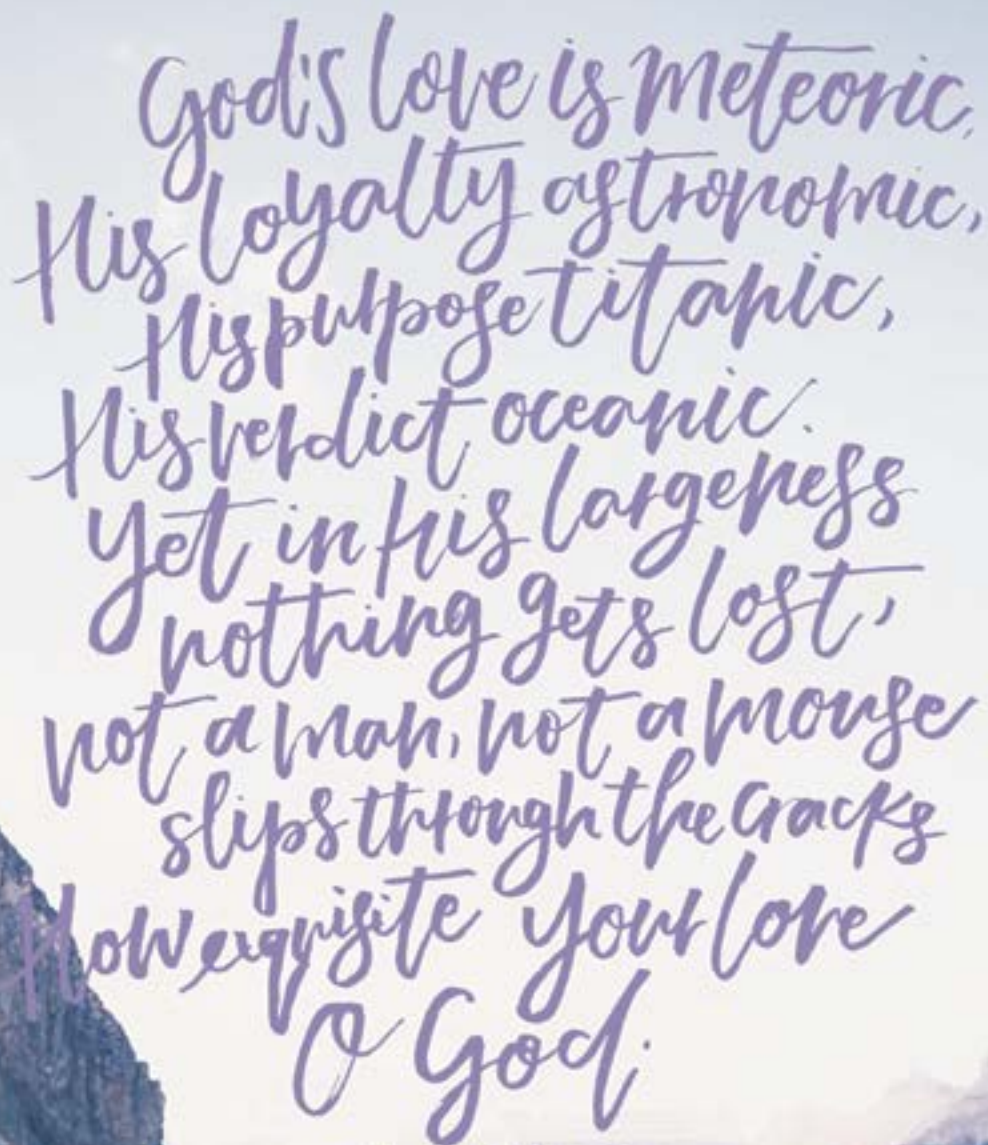 God's love is meteoric,
His loyalty astronomic,
His purpose titanic,
His verdict oceanic.
Yet in his largeness
nothing gets lost,
not a man, not a mouse
slips through the cracks
How exquisite your love
O God.